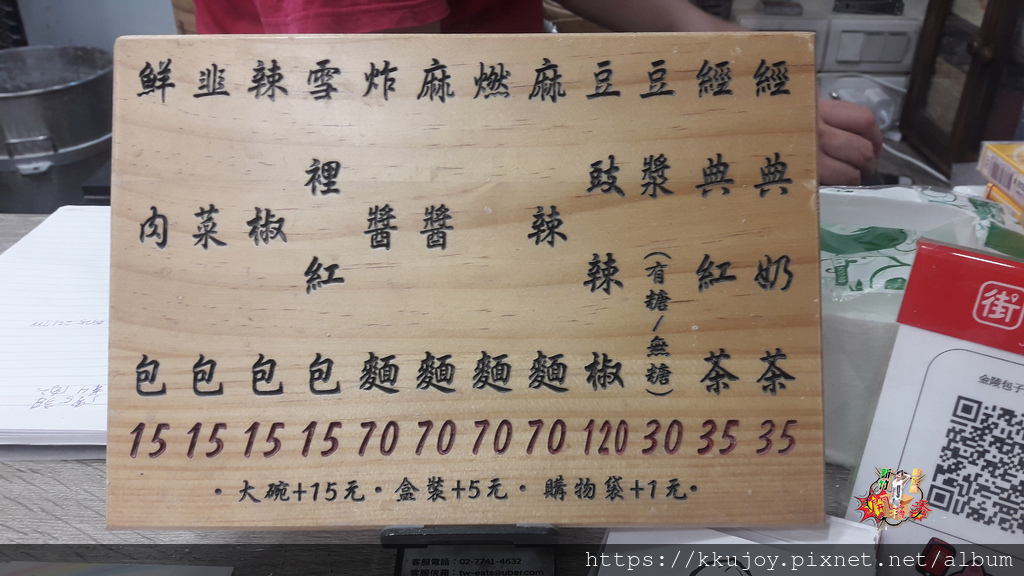 鮮肉包 15
韭菜包 15
辣椒包 15
雪裡紅包 15
炸醬麵 70
麻醬麵 70
燃麵 70
麻辣麵 70
豆豉辣椒 120
豆漿(有糖/無糖) 30
經典紅茶 35
經典奶茶 35
・大碗+15元・盒裝+5元・購物袋+1元・
街
金陵包子
客服電話：02-7741-4632
客服信箱：tw-eats@uber.com
https://kkujoy.pixnet.net/album